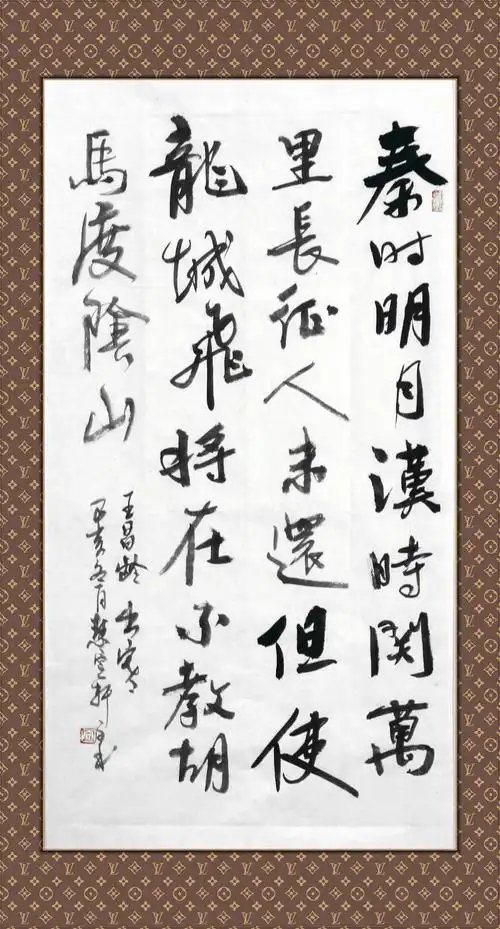 秦时明月漢時関萬
里長征人未還但使
龍城飛将在不教胡
馬度陰山
王昌龄出塞
己亥冬月